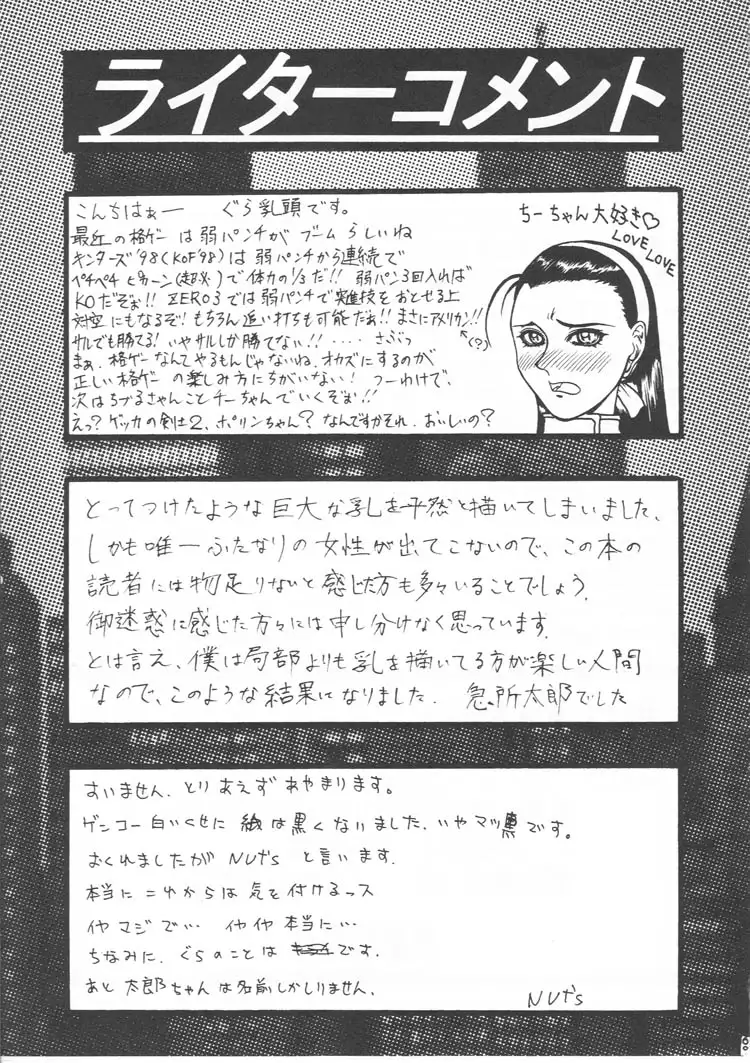 ライターコメント
こんちはぁー ぐら乳頭です。
最近の格ゲーは弱パンチがブームらしいね
キンターズ'98(KOF'98)は弱パンチから連続で
ペチペチピカーン(超必)で体力の1/3だ!! 弱パン3回入れば
KOだぞぉ!! ZERO3では弱パンチで連技をおとせる上
対空にもなるぞ!もちろん追い打ちも可能だぁ!!まさにアメリカン!!
サルでも勝てる!いやサルしか勝てない!!・・・・さぶっ
まぁ、格ゲーなんてやるもんじゃないね、オカズにするのが
正しい格ゲーの楽しみ方にちがいない! つーわけで、
次はちづるさんことチーちゃんでいくぞぉ!!
えっ?ゲッカの剣士2、ポリンちゃん?なんですかそれ、おいしいの?
ちーちゃん大好き♡
LOVE
LOVE
(?)
とってつけたような巨大な乳を平然と描いてしまいました、
しかも唯一ふたなりの女性が出てこないので、この本の
読者には物足りないと感じた方も多々いることでしょう。
御迷惑に感じた方々には申し分けなく思っています。
とは言え、僕は局部よりも乳を描いてる方が楽しい人間
なので、このような結果になりました. 急所太郎でした
すいません. とりあえずあやまります。
ゲンコー白いくせに 紙は黒くないました. いやマッ黒です。
おくれましたが NUTs と言います.
本当に これからは 気を付けるっス
イヤ マジで… イヤイヤ 本当に…
ちなみに. ぐらのことは です.
あと 太郎ちゃんは名前しかしりません.
NUTs